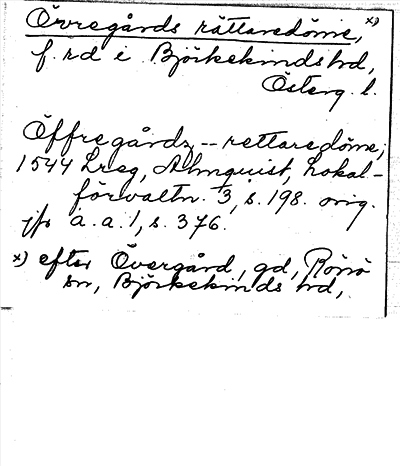 Övregårds rättaredöme, x)
f.rd i Björkekinds hd,
Österg. l.
Öffregårdz -- rettaredöme,
1544 Lreg, Almquist, Lokal-
förvaltn. 3, s. 198. orig.
jfr a.a. 1, s. 376.
x) efter Övergård, gd, Rönö
sn, Björkekinds hd,